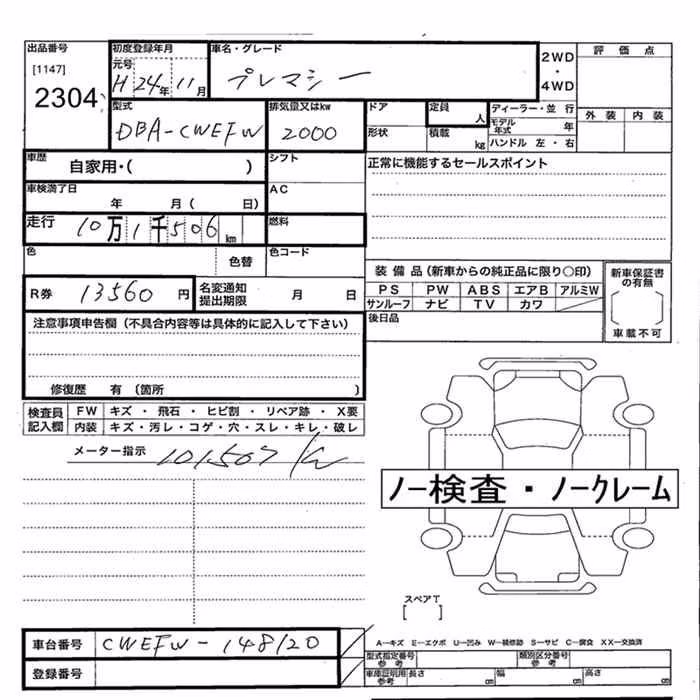 出品番号 初度登録年月 車名・グレード 2WD 評価点
[1147] 元号 H 24年 11月 プレマシー ・
2304 4WD
型式 排気量又はkw ドア 定員 人 ディーラー・並行 外装 内装
DBA-CWEFW 2000 形状 積載 kg モデル年式 年
ハンドル 左・右
車歴 自家用・( ) シフト 正常に機能するセールスポイント
車検満了日 年 月( 日) AC
走行 10万1千506km 燃料
色 色替 色コード
装備品(新車からの純正品に限り○印) 新車保証書の有無
R券 13560円 名変通知提出期限 月 日 PS PW ABS エアB アルミW
サンルーフ ナビ TV カワ 車載不可
注意事項申告欄(不具合内容等は具体的に記入して下さい) 後日品
修復歴 有(箇所 )
検査員記入欄 FW キズ・飛石・ヒビ割・リペア跡・X要
内装 キズ・汚レ・コゲ・穴・スレ・キレ・破レ
メーター指示 101,507 K
ノー検査・ノークレーム
スペアT
[ ]
車台番号 CWEFW-148120 A-キズ E-エクボ U-凹み W-補修跡 S-サビ C-腐食 XX-交換済
型式指定番号 参考 類別区分番号 参考
登録番号 車庫証明用 参考 長さ cm 幅 cm 高さ cm